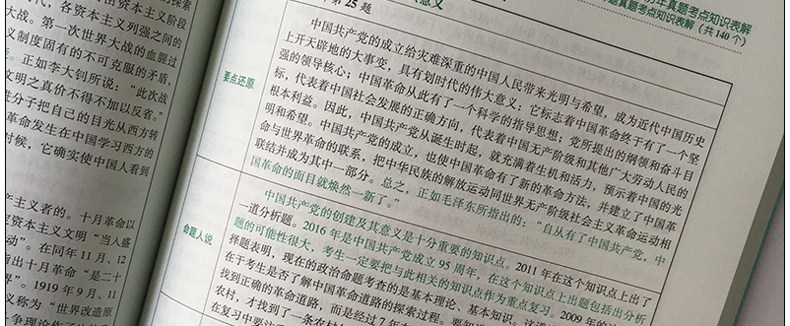 代，各资本主义列强之间的
大战。第一次世界大战的血腥过
义制度固有的不可克服的矛盾，
。正如李大钊所说：“此次战
文明之真价不得不加以反省。”
进分子把自己的目光从西方转
革命发生在中国学习西方的
时候，它确实使中国人看到
产主义者的。十月革命以
定资本主义文明“当人盛
动”。在同年11月、12
指出十月革命“是二十
。1919年9月、11
义称为“世界改造原
历年真题考点知识表解
真题考点知识表解（共140个）
第25题
意义
要点还原
中国共产党的成立给灾难深重的中国人民带来光明与希望，成为近代中国历史
上开天辟地的大事变，具有划时代的伟大意义：它标志着中国革命终于有了一个坚
强的领导核心；中国革命从此有了一个科学的指导思想；党所提出的纲领和奋斗目
标，代表着中国社会发展的正确方向，代表着中国无产阶级和其他广大劳动人民的
根本利益。因此，中国共产党从诞生时起，就充满着生机和活力，预示着中国的光
明和希望。中国共产党的成立，也使中国革命有了新的革命方法，并建立了中国革
命与世界革命的联系，把中华民族的解放运动同世界无产阶级社会主义革命运动相
联结并成为其中一部分。总之，正如毛泽东所指出的：“自从有了中国共产党，中
国革命的面目就焕然一新了。”
命题人说
中国共产党的创建及其意义是十分重要的知识点。2011年在这个知识点上出了
一道分析题。2016年是中国共产党成立95周年，在这个知识点上出题包括出分析
题的可能性很大，考生一定要把与此相关的知识点作为重点复习。2009年的
择题表明，现在的政治命题考查的是基本理论、基本知识。
在于考生是否了解中国革命道路的探索过程。要知
找到正确的革命道路，而是经过了7年
农村，才找到了一条农村
在复习中要注